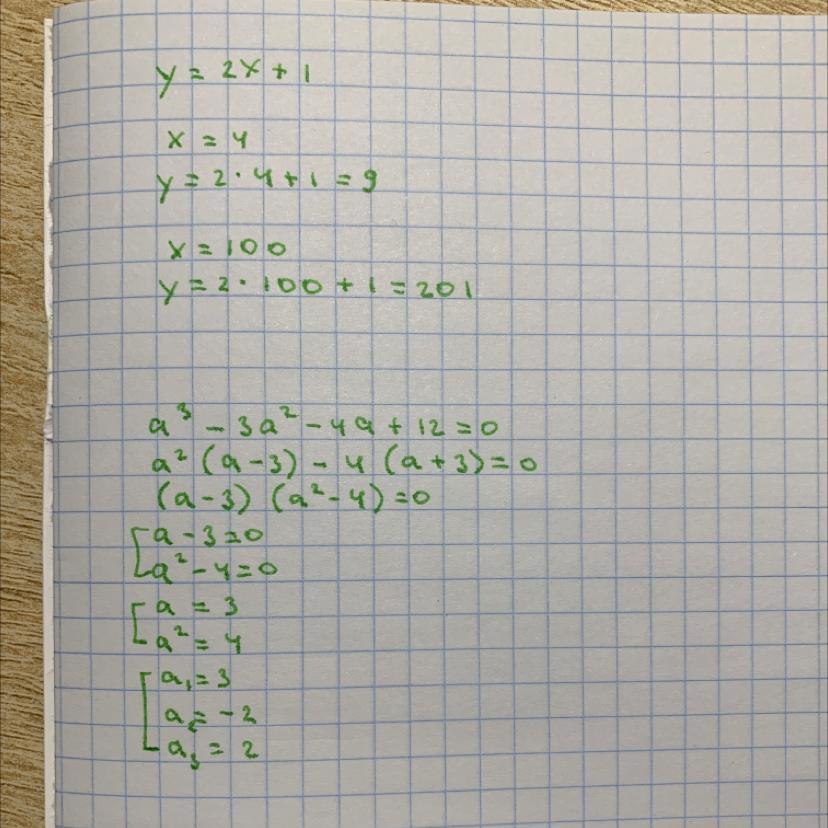 y = 2x + 1
x = 4
y = 2 · 4 + 1 = 9
x = 100
y = 2 · 100 + 1 = 201
a³ - 3a² - 4a + 12 = 0
a² (a - 3) - 4 (a + 3) = 0
(a - 3) (a² - 4) = 0
[a - 3 = 0
a² - 4 = 0
[a = 3
a² = 4
[a₁ = 3
a₂ = -2
a₃ = 2